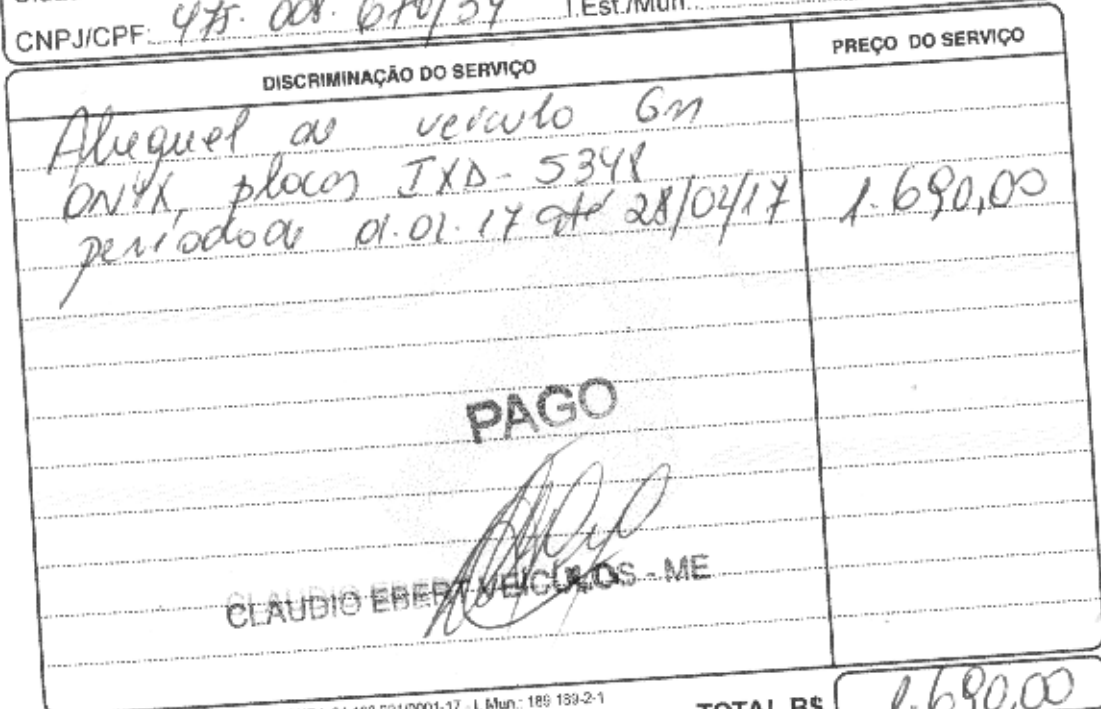 CNPJ/CPF: 475.008.670/34 I.Est./Mun.
DISCRIMINAÇÃO DO SERVIÇO PREÇO DO SERVIÇO
Aluguel de veiculo Gm
ONYX, placas IXD-5348
período de 01.02.17 até 28/02/17 1.690,00
PAGO
CLAUDIO EBERT VEICULOS - ME
/0001-17 - I. Mun.: 189.189-2-1
TOTAL R$ 1.690,00